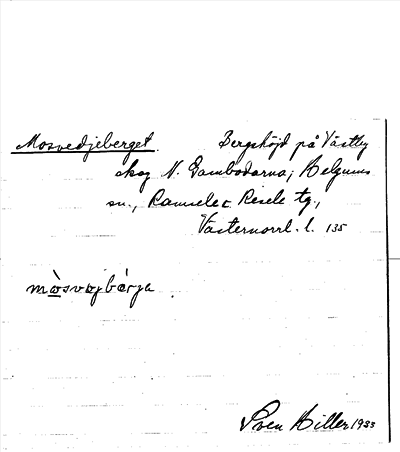 Mosvedjeberget. Bergshöjd på Västby
skog N. Dambodarna; Helgums
sn., Ramsele o Resele tg.,
Västernorrl. l. 135
mòsvæjbærja
Sven Hiller 1933